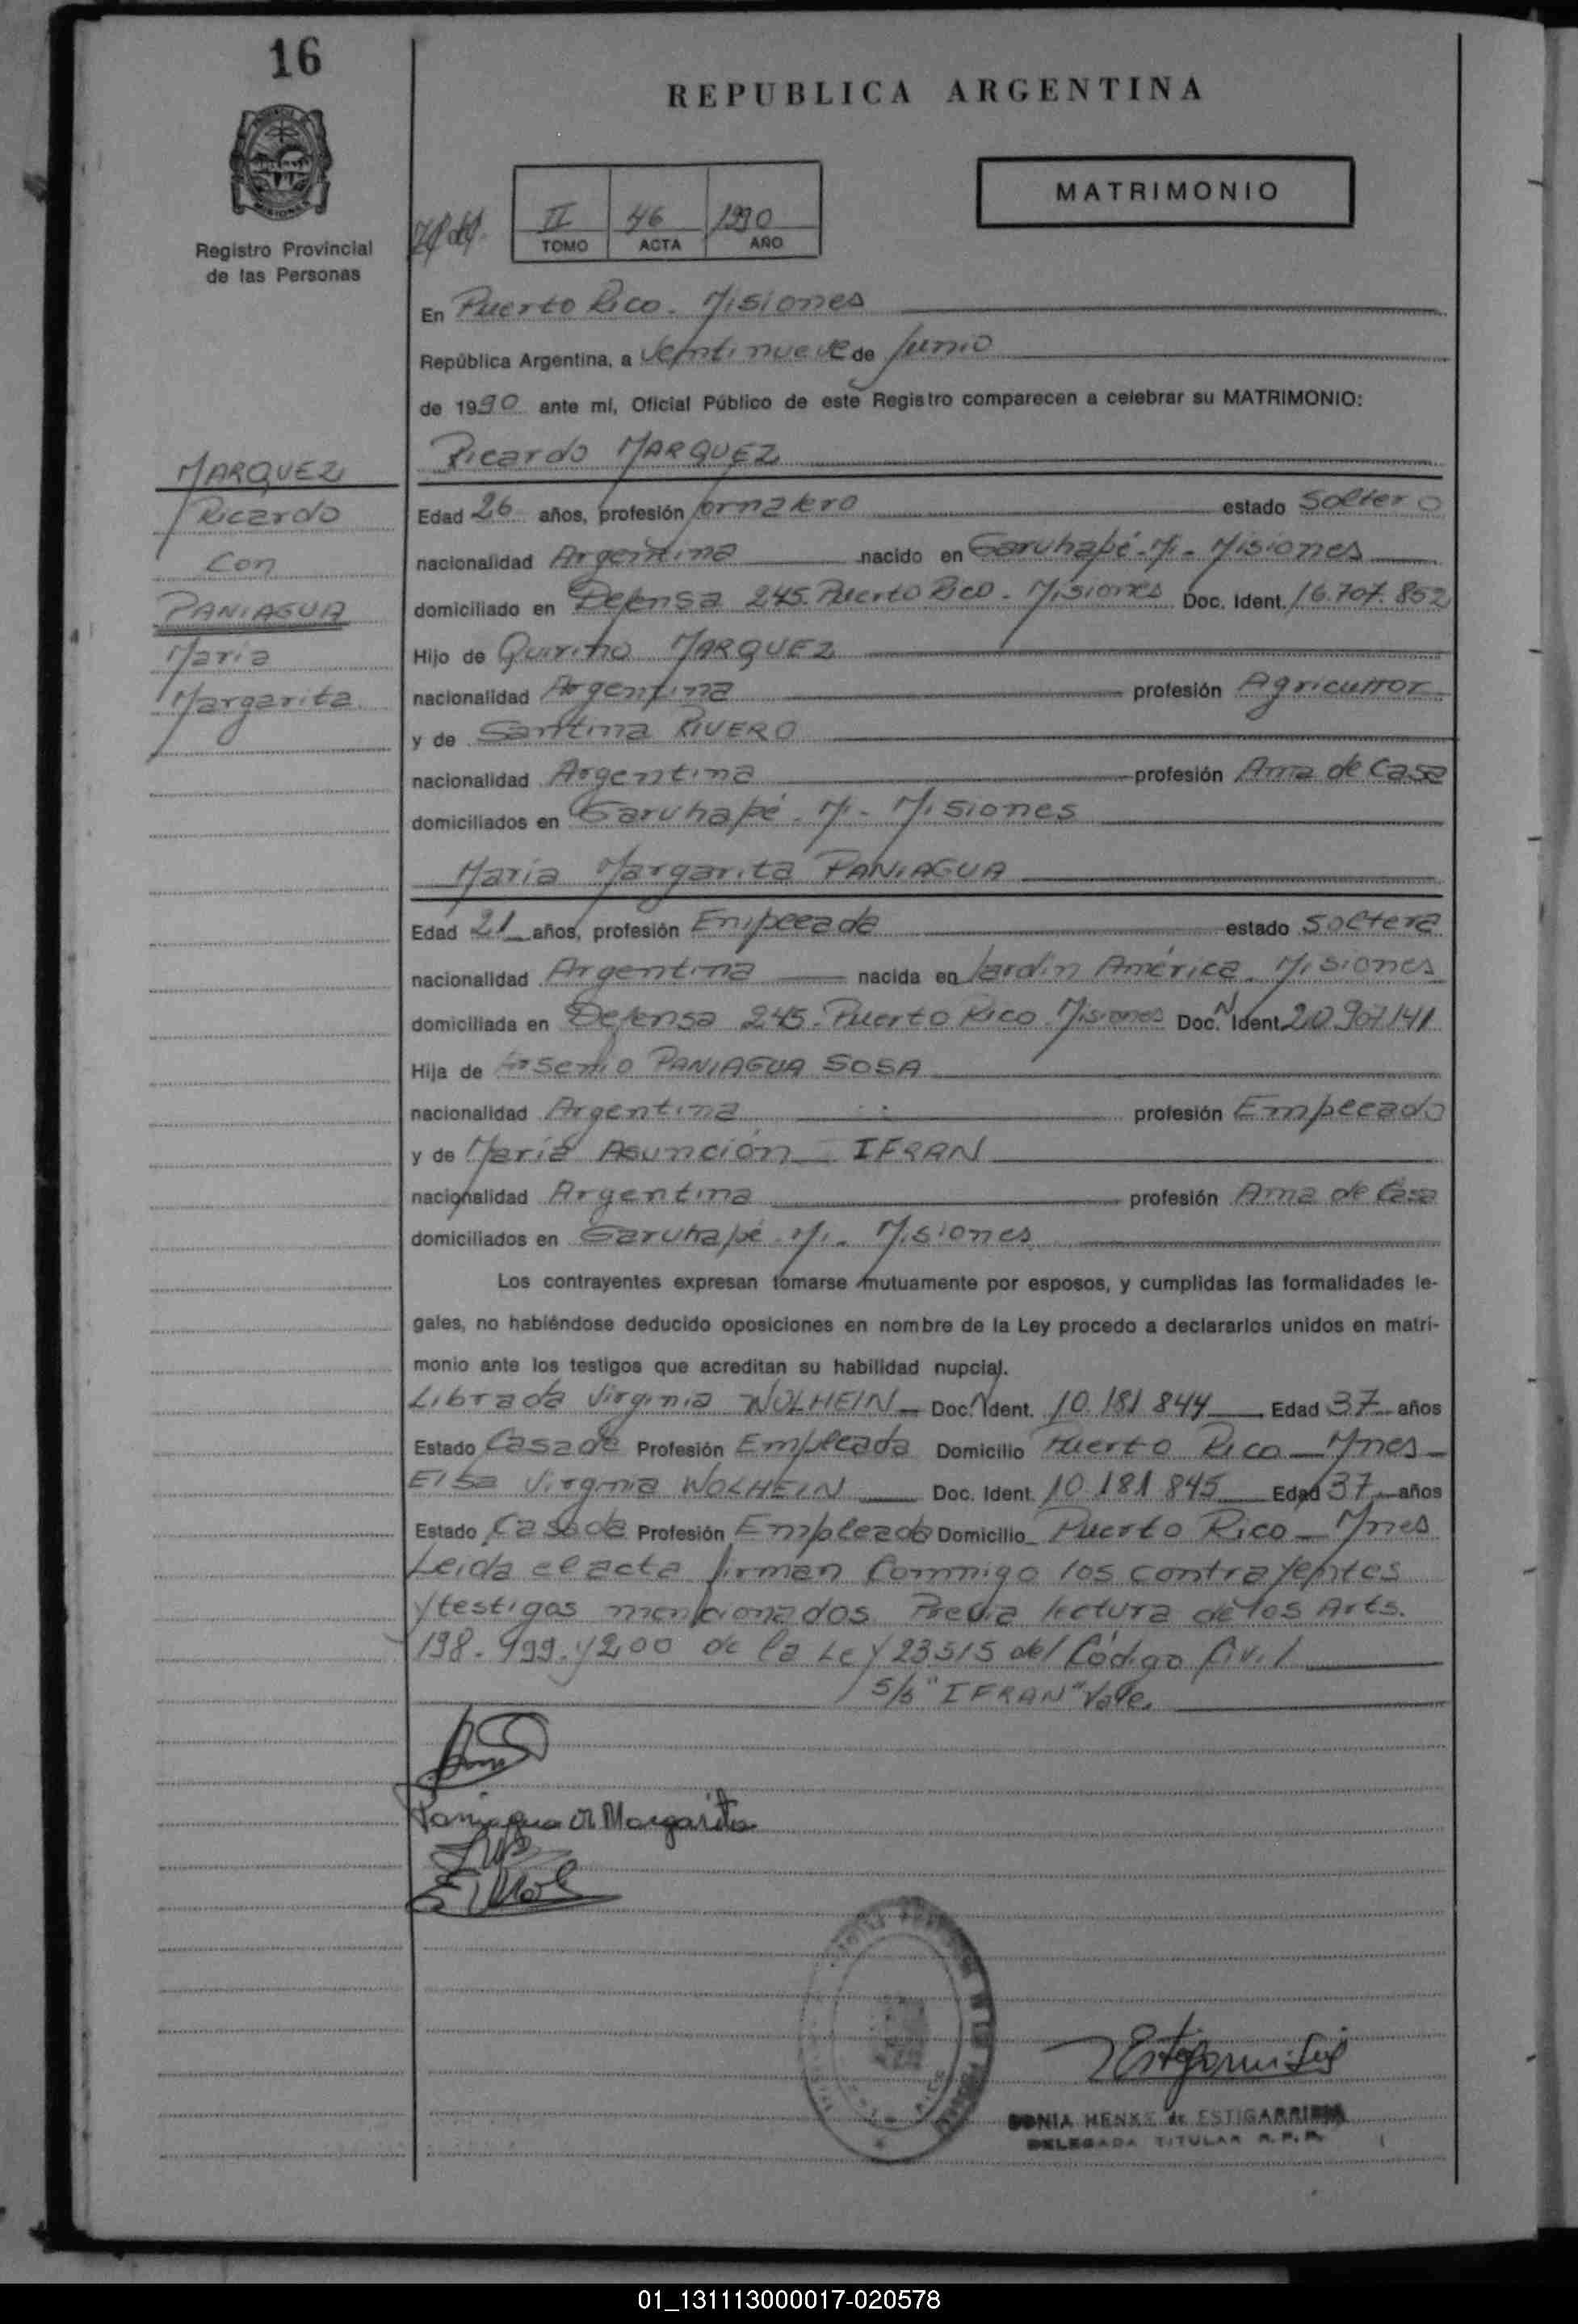 16
REPUBLICA ARGENTINA
MATRIMONIO
Registro Provincial
de las Personas
II 46 1990
TOMO ACTA AÑO
En Puerto Rico - Misiones
República Argentina, a veintinueve de Junio
de 1990 ante mí, Oficial Público de este Registro comparecen a celebrar su MATRIMONIO:
MARQUEZ
Ricardo
con
PANIAGUA
María
Margarita
Ricardo MARQUEZ
Edad 26 años, profesión Jornalero estado Soltero
nacionalidad Argentina nacido en Garuhapé - M. - Misiones
domiciliado en Defensa 245. Puerto Rico - Misiones Doc. Ident. 16.707.852
Hijo de Quirino MARQUEZ
nacionalidad Argentina profesión Agricultor
y de Santina RIVERO
nacionalidad Argentina profesión Ama de Casa
domiciliados en Garuhapé - M. - Misiones
María Margarita PANIAGUA
Edad 21 años, profesión Empleada estado soltera
nacionalidad Argentina nacida en Jardín América - Misiones
domiciliada en Defensa 245. Puerto Rico Misiones Doc. Ident. 20.907.141
Hija de Arsenio PANIAGUA SOSA
nacionalidad Argentina profesión Empleado
y de María Asunción IFRAN
nacionalidad Argentina profesión Ama de Casa
domiciliados en Garuhapé - M. - Misiones
Los contrayentes expresan tomarse mutuamente por esposos, y cumplidas las formalidades le-
gales, no habiéndose deducido oposiciones en nombre de la Ley procedo a declararlos unidos en matri-
monio ante los testigos que acreditan su habilidad nupcial.
Librada Virginia WOLHEIN Doc. Ident. 10.181.844 Edad 37 años
Estado Casada Profesión Empleada Domicilio Puerto Rico - Mnes
Elsa Virginia WOLHEIN Doc. Ident. 10.181.845 Edad 37 años
Estado Casada Profesión Empleada Domicilio Puerto Rico - Mnes
Leída el acta firman conmigo los contrayentes
y testigos mencionados. Previa lectura de los Arts.
198. 199. y 200 de la Ley 23515 del Código Civil
S/b "IFRAN" Vale.
Paniagua M Margarita
SONIA HENKE de ESTIGARRIBIA
DELEGADA TITULAR R.P.P.
01_131113000017-020578